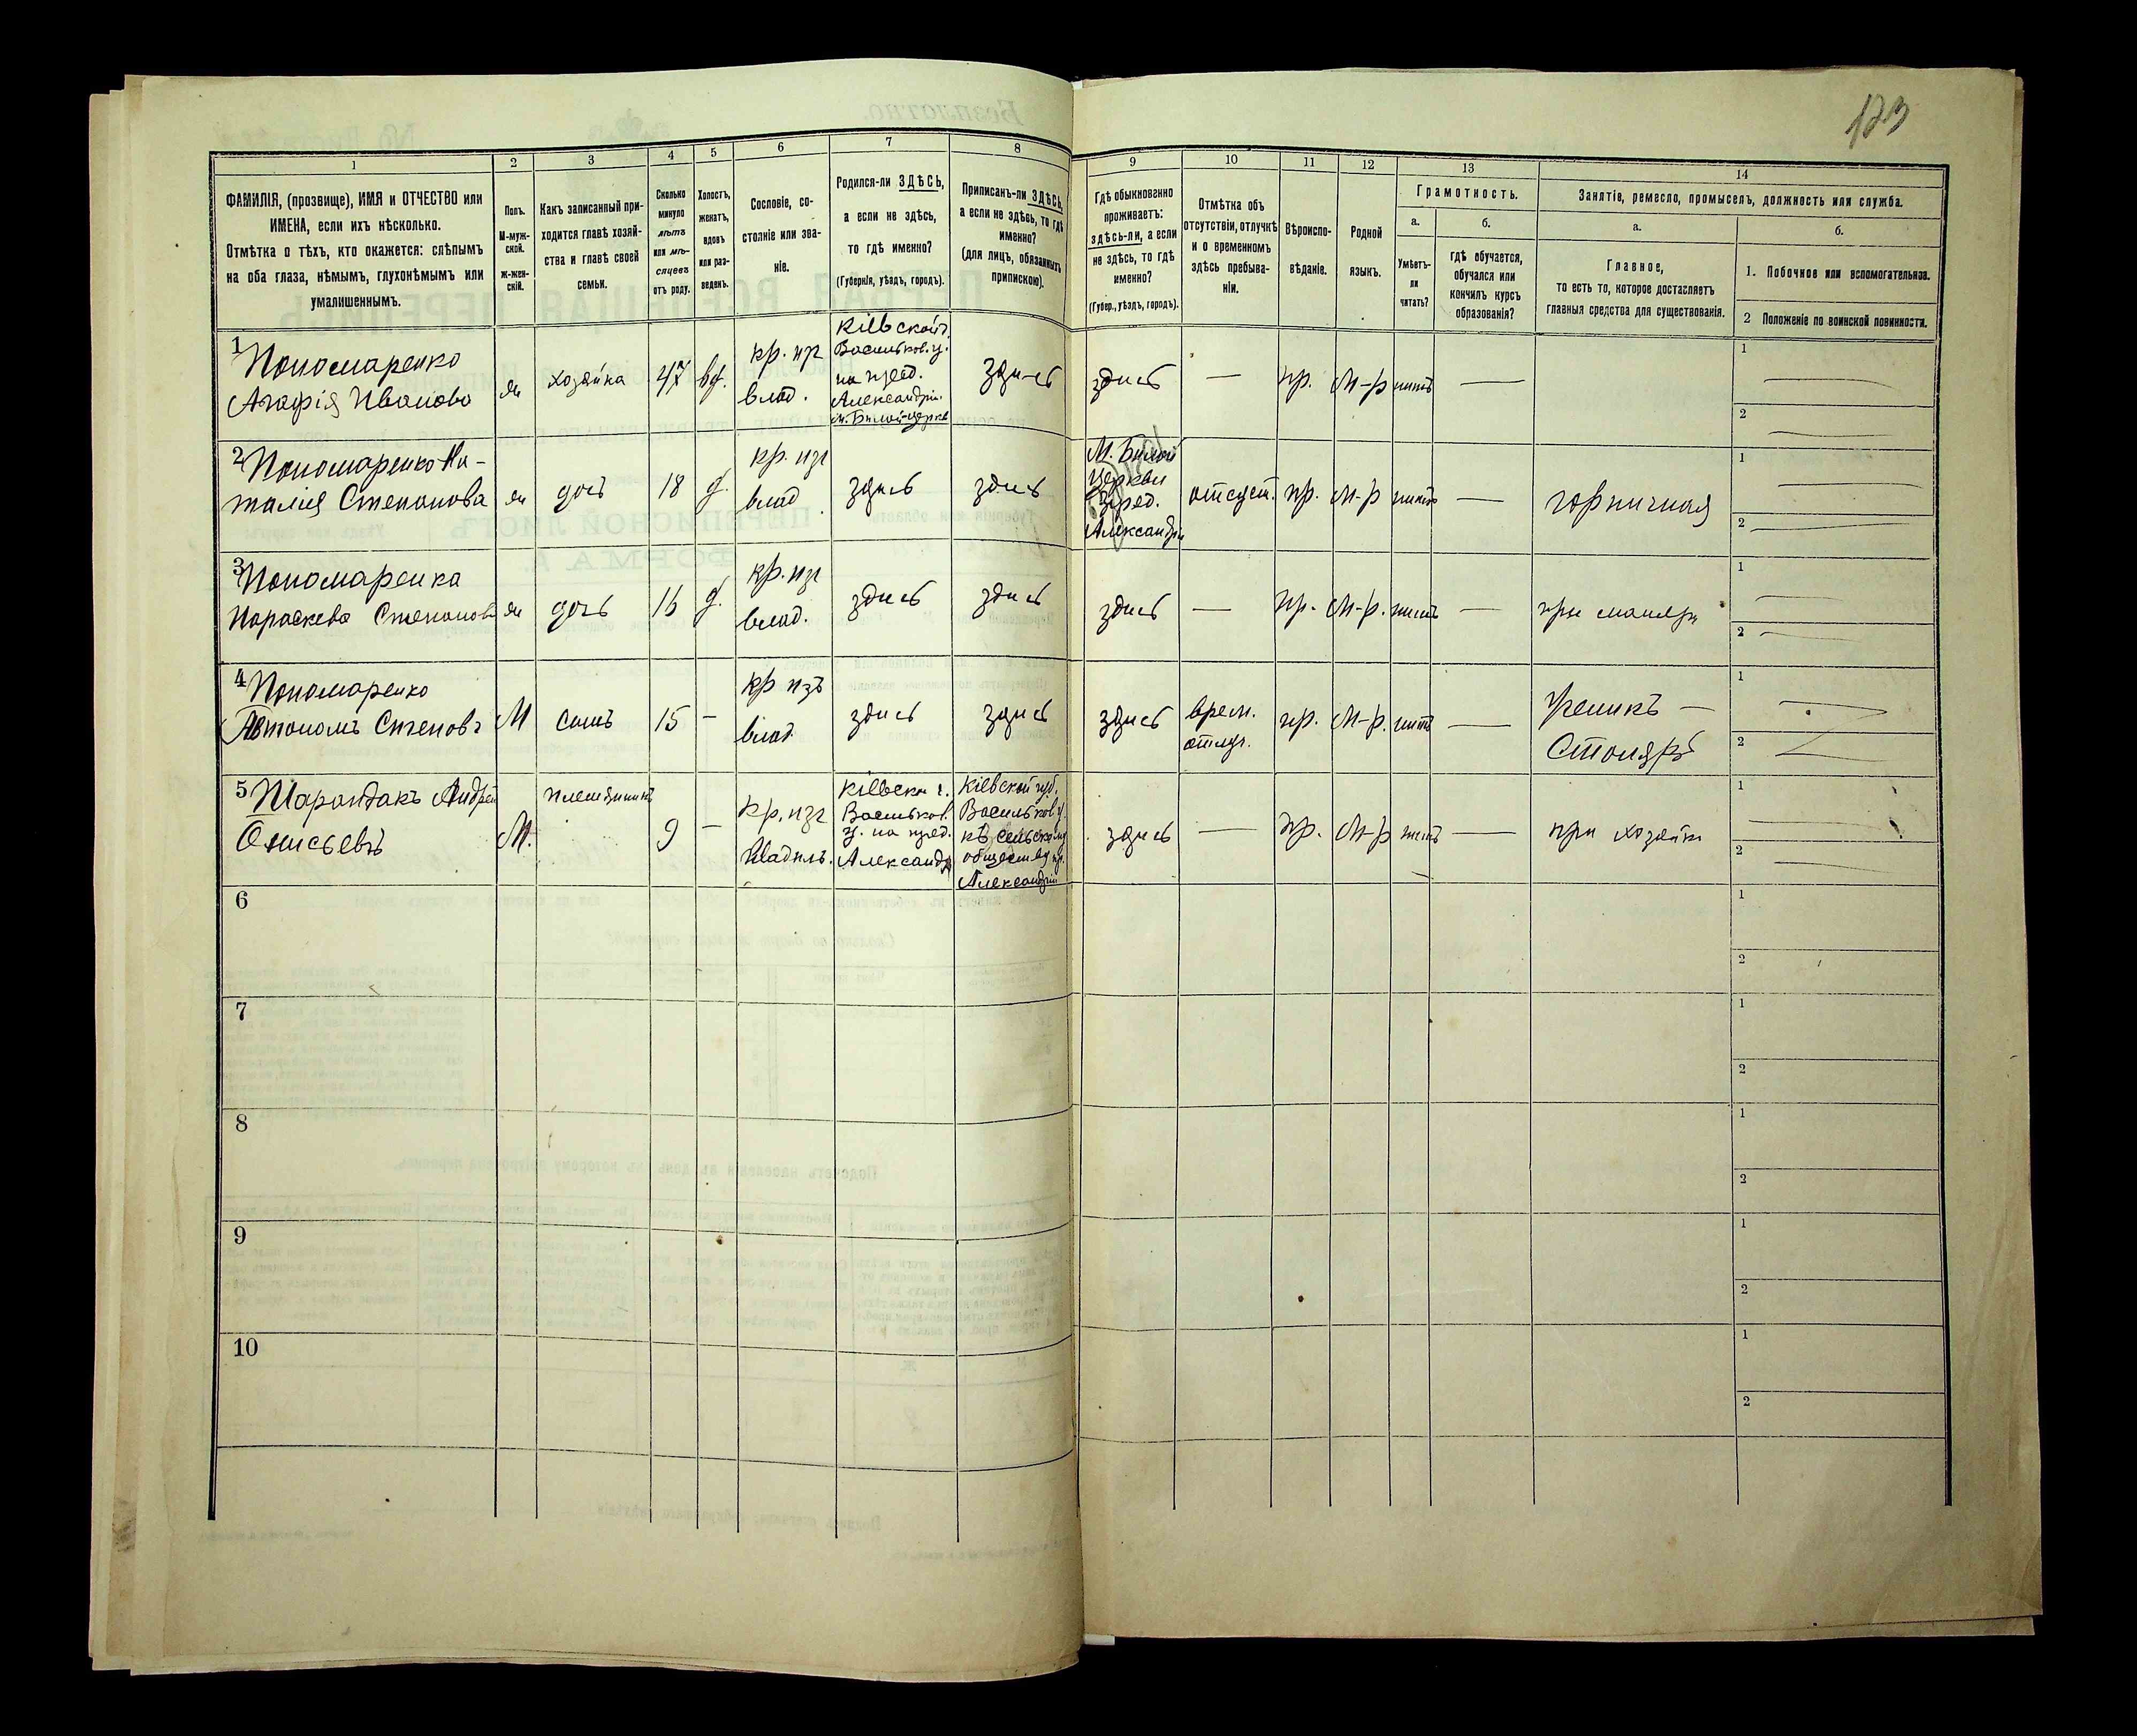 123
1
2
3
4
5
6
7
8
9
10
11
12
13
14
ФАМИЛІЯ, (прозвище), ИМЯ и ОТЧЕСТВО или
ИМЕНА, если ихъ нѣсколько.
Отмѣтка о тѣхъ, кто окажется: слѣпымъ
на оба глаза, нѣмымъ, глухонѣмымъ или
умалишеннымъ.
Полъ.
М-муж-
ской.
Ж-жен-
скій.
Какъ записанный при-
ходится главѣ хозяй-
ства и главѣ своей
семьи.
Сколько
минуло
лѣтъ
или мѣ-
сяцевъ
отъ роду.
Холостъ,
женатъ,
вдовъ
или раз-
веденъ.
Сословіе, со-
стояніе или зва-
ніе.
Родился-ли ЗДѢСЬ,
а если не здѣсь,
то гдѣ именно?
(Губернія, уѣздъ, городъ).
Приписанъ-ли ЗДѢСЬ,
а если не здѣсь, то гдѣ
именно?
(для лицъ, обязанныхъ
припискою).
Гдѣ обыкновенно
проживаетъ:
здѣсь-ли, а если
не здѣсь, то гдѣ
именно?
(Губер., уѣздъ, городъ).
Отмѣтка объ
отсутствіи, отлучкѣ
и о временномъ
здѣсь пребыва-
ніи.
Вѣроиспо-
вѣданіе.
Родной
языкъ.
Грамотность.
а.
Умѣетъ-
ли
читать?
б.
гдѣ обучается,
обучался или
кончилъ курсъ
образованія?
Занятіе, ремесло, промыселъ, должность или служба.
а.
Главное,
то есть то, которое доставляетъ
главныя средства для существованія.
б.
1. Побочное или вспомогательное.
2 Положеніе по воинской повинности.
1
Пономаренко
Агафія Иванова
хозяйка
47
вд.
кр. изъ
влад.
Кіевской г.
Васильков. у.
на пред.
Александрія
м. Бѣлой-Церкв
здѣсь
здѣсь
—
пр.
М-р
нѣтъ
—
1
2
2
Пономаренко На-
талія Степанова
дочь
18
д.
кр. изъ
влад
здѣсь
здѣсь
М. Бѣлой
Церкви
пред.
Александрія
отсут.
пр.
М-р
нѣтъ
—
горничная
1
2
3
Пономаренка
Параскева Степанова
дочь
16
д.
кр. изъ
влад.
здѣсь
здѣсь
здѣсь
—
пр.
М-р.
нѣтъ
—
при матери
1
2
4
Пономаренко
Автономъ Степовъ
М
сынъ
15
—
кр изъ
влад.
здѣсь
здѣсь
здѣсь
врем.
отлуч.
пр.
М-р.
нѣтъ
—
Ученикъ —
Столяръ
1
2
5
Шарандакъ Андрей
Онисьевъ
М.
племянникъ
9
—
кр. изъ
владѣль.
Кіевской г.
Васильков.
у. на пред.
Александр
Кіевской губ.
Васильков у.
къ сельскому
обществу пр.
Александрія
здѣсь
—
пр.
М-р
нѣтъ
—
при хозяйкѣ
1
2
6
1
2
7
1
2
8
1
2
9
1
2
10
1
2